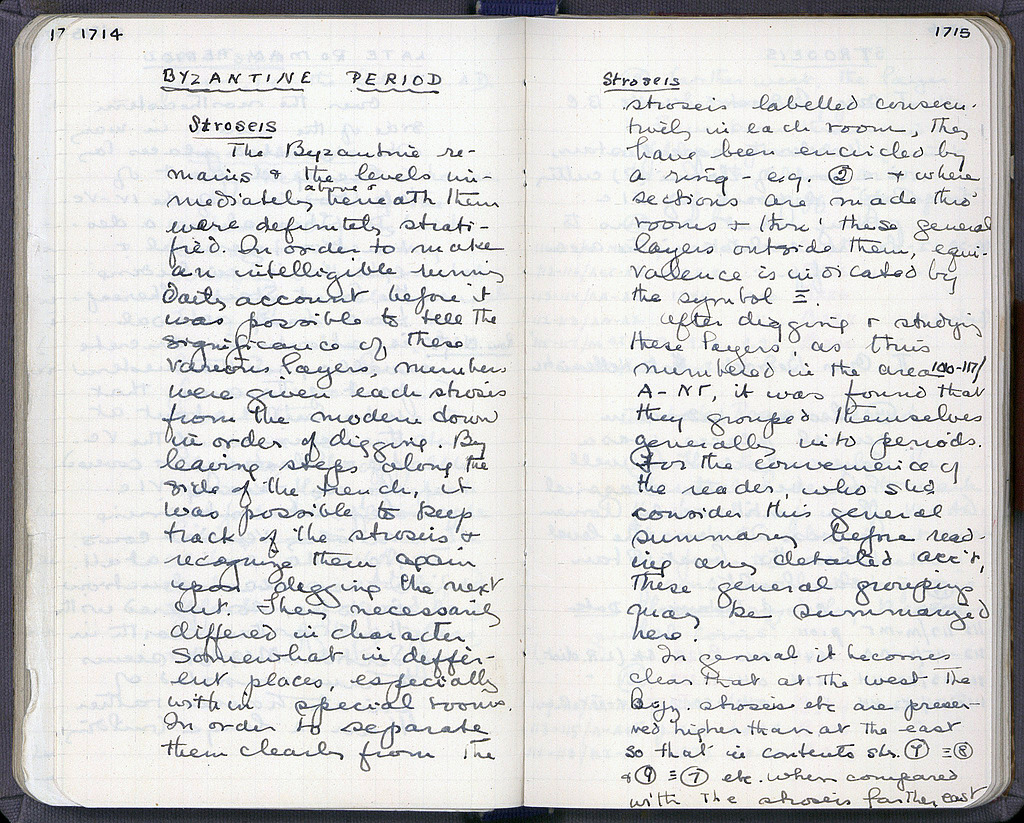 17 1714
BYZANTINE PERIOD
Stroseis
The Byzantine re-
mains & the levels im-
mediately above & beneath them
were definitely strati-
fied. In order to make
an intelligible running
daily account before it
was possible to tell the
significance of these
various layers, numbers
were given each strosis
from the modern down
in order of digging. By
leaving steps along the
side of the trench, it
was possible to keep
track of the stroseis &
recognize them again
upon digging the next
cut. They necessarily
differed in character
somewhat in differ-
ent places, especially
within special rooms.
In order to separate
them clearly from the
1715
Stroseis
stroseis labelled consecu-
tively in each room, they
have been encircled by
a ring - e.g. ② & where
sections are made thro'
rooms & thru these general
layers outside them, equi-
valence is indicated by
the symbol Ξ
After digging & studying
these layers, as thus
numbered in the area 100-117/
A-NT, it was found that
they grouped themselves
generally into periods.
For the convenience of
the reader, who shd.
consider this general
summary before read-
ing any detailed acc't,
these general grouping
may be summarized
here.
In general it becomes
clear that at the west the
Byz. stroseis etc are preser-
ved higher than at the east
so that in contents str. ⑦ Ξ ⑧
& ⑨ Ξ ⑦ etc. when compared
with the stroseis farther east